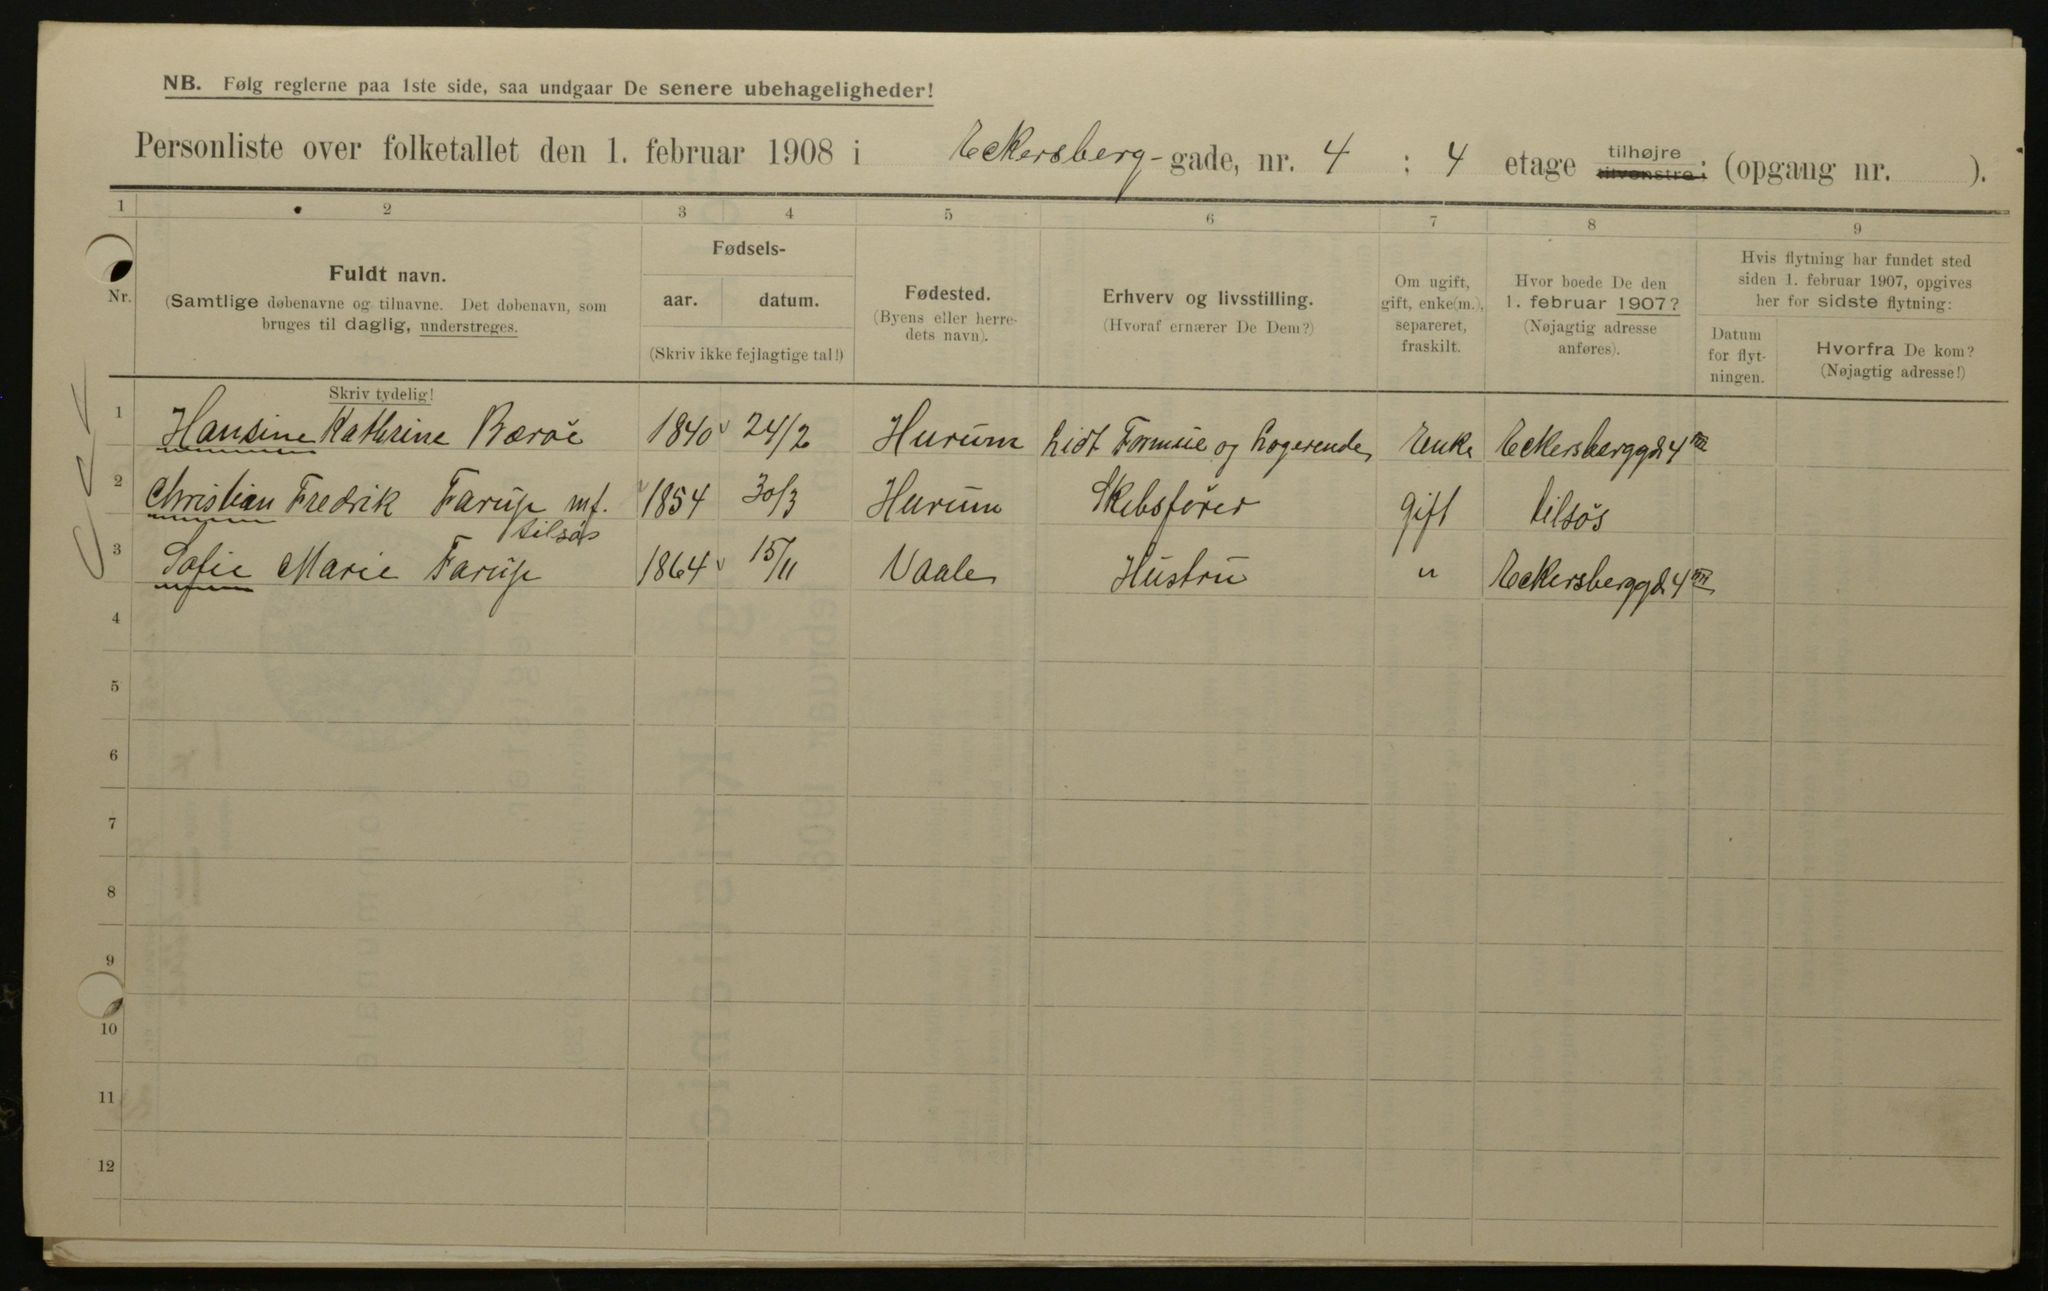 NB. Følg reglerne paa 1ste side, saa undgaar De senere ubehageligheder!
Personliste over folketallet den 1. februar 1908 i Eckersberg-gade, nr. 4 : 4 etage tilhøjre tilvenstre; (opgang nr. ).
1 2 3 4 5 6 7 8 9
Nr.
Fuldt navn.
(Samtlige døbenavne og tilnavne. Det døbenavn, som
bruges til daglig, understreges.
Skriv tydelig!
Fødsels-
aar. datum.
(Skriv ikke fejlagtige tal!)
Fødested.
(Byens eller herre-
dets navn).
Erhverv og livsstilling.
(Hvoraf ernærer De Dem?)
Om ugift,
gift, enke(m.),
separeret,
fraskilt.
Hvor boede De den
1. februar 1907?
(Nøjagtig adresse
anføres).
Hvis flytning har fundet sted
siden 1. februar 1907, opgives
her for sidste flytning:
Datum
for flyt-
ningen.
Hvorfra De kom?
(Nøjagtig adresse!)
1 Hansine Kathrine Bærøe 1840 24/2 Hurum Lidt Formue og Logerende Enke Eckersberggd 4
2 Christian Fredrik Farup mf. 1854 30/3 Hurum Skibsfører gift tilsøs
tilsøs
3 Sofie Marie Farup 1864 15/11 Vaale Hustru " Eckersberggd 4
4
5
6
7
8
9
10
11
12